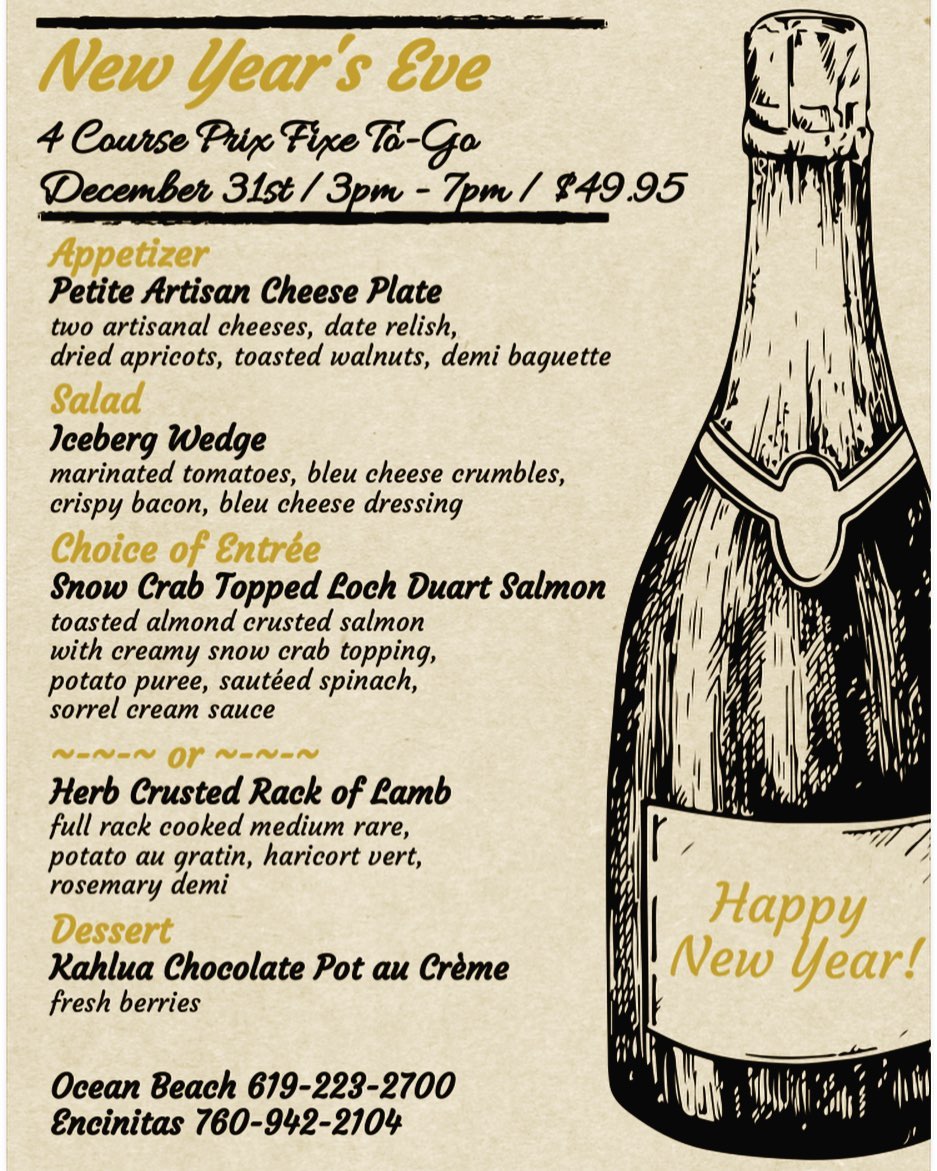 New Year's Eve
4 Course Prix Fixe To-Go
December 31st / 3pm - 7pm / $49.95
Appetizer
Petite Artisan Cheese Plate
two artisanal cheeses, date relish,
dried apricots, toasted walnuts, demi baguette
Salad
Iceberg Wedge
marinated tomatoes, bleu cheese crumbles,
crispy bacon, bleu cheese dressing
Choice of Entrée
Snow Crab Topped Loch Duart Salmon
toasted almond crusted salmon
with creamy snow crab topping,
potato puree, sautéed spinach,
sorrel cream sauce
~-~-~ or ~-~-~
Herb Crusted Rack of Lamb
full rack cooked medium rare,
potato au gratin, haricort vert,
rosemary demi
Dessert
Kahlua Chocolate Pot au Crème
fresh berries
Ocean Beach 619-223-2700
Encinitas 760-942-2104
Happy
New Year!